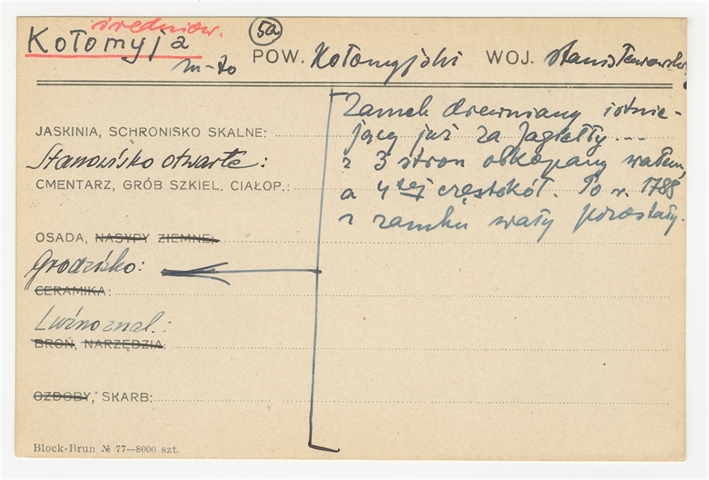 średniow.
Kołomyja
m-to
5a
POW. Kołomyjski WOJ. Stanisławowskie
JASKINIA, SCHRONISKO SKALNE:
Stanowisko otwarte:
CMENTARZ, GRÓB SZKIEL. CIAŁOP.:
OSADA, NASYPY ZIEMNE:
Grodzisko:
CERAMIKA:
Luźno znal.:
BROŃ, NARZĘDZIA:
OZDOBY, SKARB:
Zamek drewniany istnie-
jący już za Jagiełły...
z 3 stron obkopany wałem,
a 4tej częstokół. Po r. 1788
z zamku wały pozostały.
Block-Brun № 77—8000 szt.